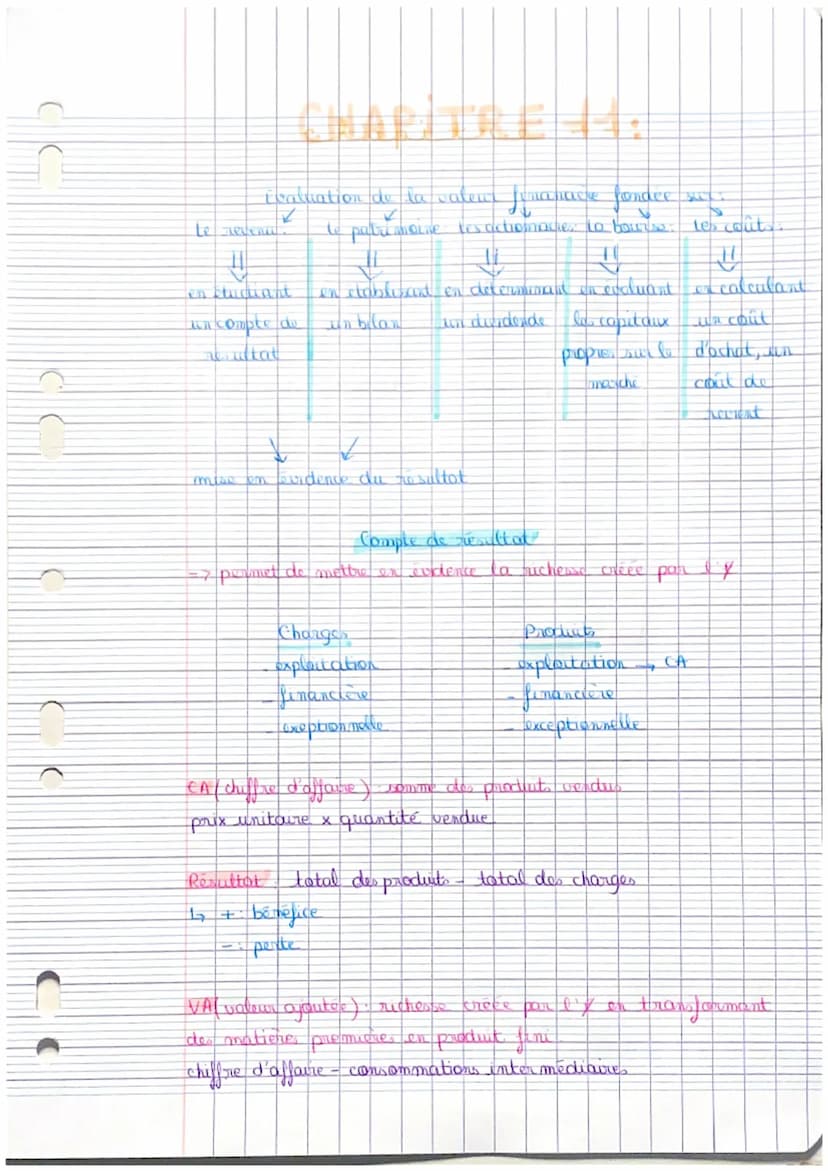 CHAPITRE 11:
Évaluation de la valeur financière fondée sur:
Le revenu: le patrimoine les actionnaires la bourse: les coûts:
en étudiant en établissant en déterminant en évaluant en calculant
un compte de un bilan un dividende les capitaux un coût
résultat propres sur le d'achat, un
marché coût de
revient
mise en évidence du résultat
Compte de résultat
=> permet de mettre en évidence la richesse créée par l'y
Charges Produits
- exploitation - exploitation → CA
- financière - financière
- exeptionnelle - exceptionnelle
CA (chiffre d'affaire): somme des produits vendus
prix unitaire x quantité vendue
Résultat: total des produits - total des charges
↳ +: bénéfice
-: perte
VA (valeur ajoutée): richesse créée par l'y en transformant
des matières premières en produit fini
chiffre d'affaire - consommations intermédiaires